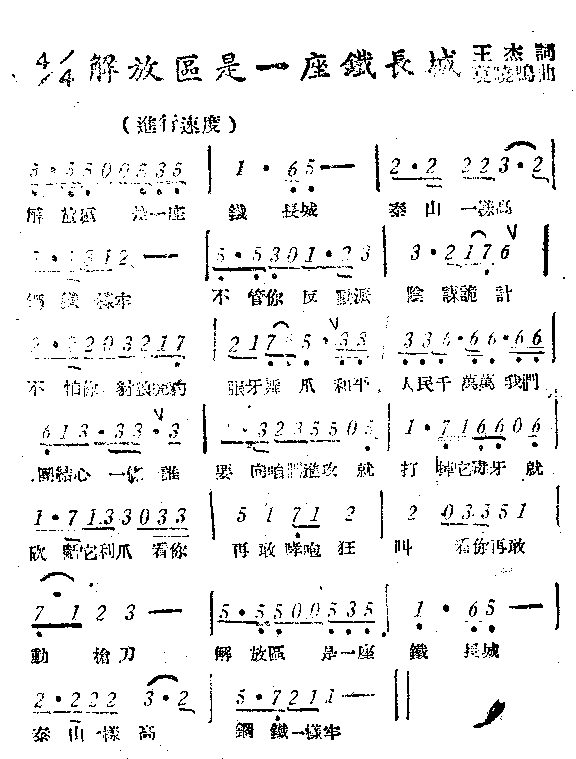 4/4 解放區是一座鐵長城 王杰詞
曉鳴曲
（進行速度）
5·5 5 0 0 5 3 5 | 1 · 6 5 — | 2·2 2 2 3·2 |
解放區 是一座 鐵 長城 泰山一樣高
1·1 3 1 2 — | 5·5 3 0 1·2 3 | 3·2 1 7 6 ∨ |
鋼鐵一樣牢 不管你反動派 陰謀詭計
2·2 2 0 3 2 1 7 | 2 1 7 5 5·3 3 | 3 3 6·6 6·6 6 |
不怕你豺狼虎豹 張牙舞爪和平 人民千萬萬我們
6 1 3·3 3·3 | 2·3 2 3 5 5 0 5 | 1·7 1 6 6 0 6 |
團結心一條誰 要向咱們進攻就 打掉它毒牙就
1·7 1 3 3 0 3 3 | 5 1 7 1 2 | 2 0 3 3 5 1 |
砍斷它利爪看你 再敢哮咆狂 叫 看你再敢
7 1 2 3 — | 5·5 5 0 0 5 3 5 | 1 · 6 5 — |
動槍刀 解放區 是一座 鐵 長城
2·2 2 2 3·2 | 5·7 2 1 1 — ||
泰山一樣高 鋼鐵一樣牢